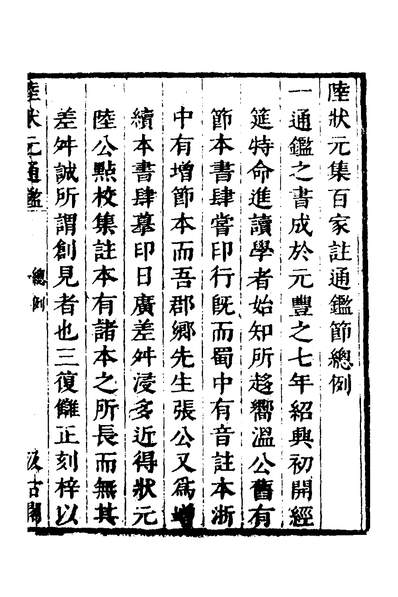 陸狀元集百家註通鑑節總例
一通鑑之書成於元豐之七年紹興初開經
筵特命進讀學者始知所趍嚮溫公舊有
節本書肆嘗印行旣而蜀中有音註本浙
中有增節本而吾郡鄉先生張公又爲增
續本書肆摹印日廣差舛浸多近得狀元
陸公點校集註本有諸本之所長而無其
差舛誠所謂創見者也三復讎正刻梓以
陸狀元通鑑 總例 一 汲古閣